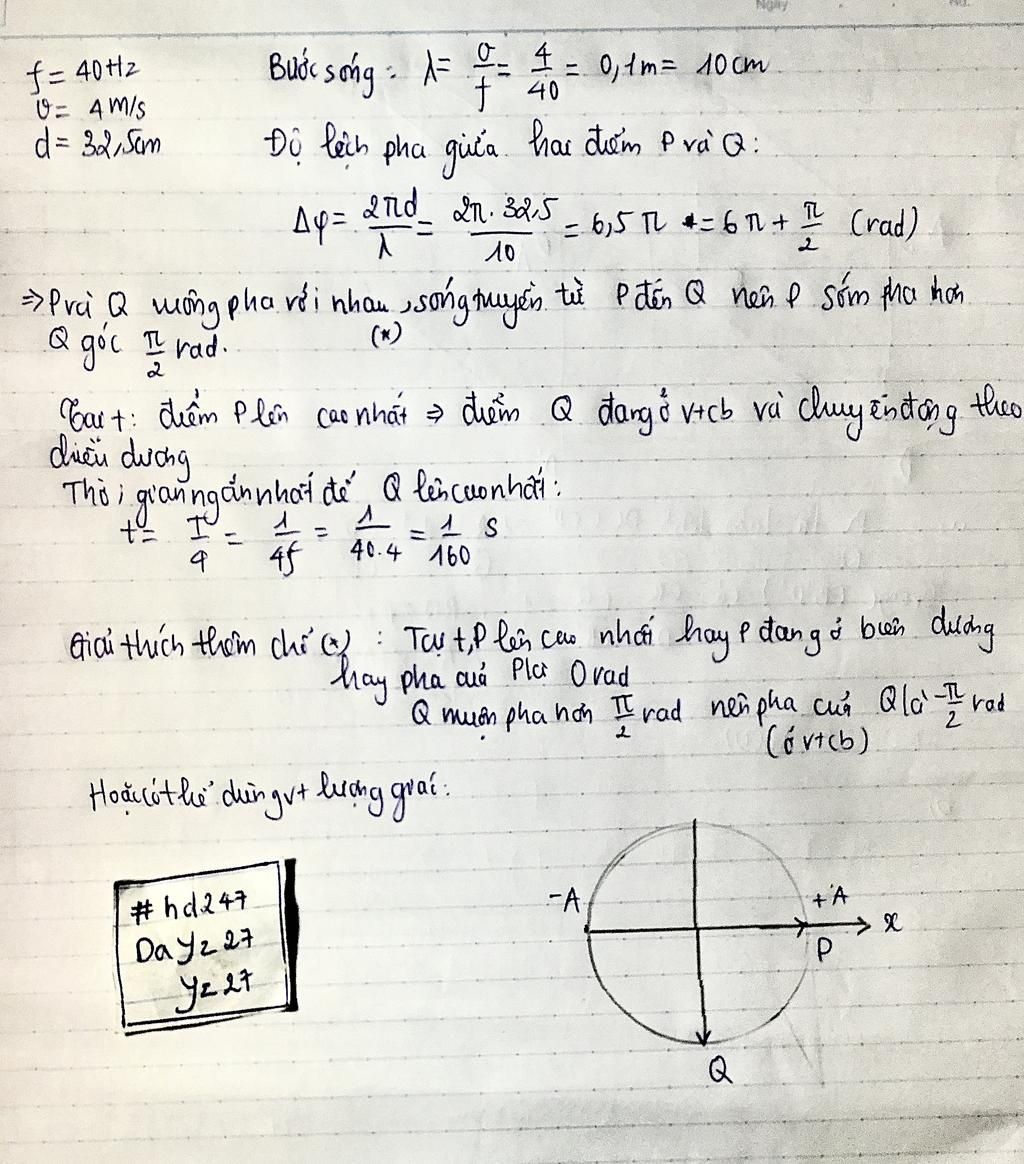 Ngày
No.
f = 40Hz
v = 4 m/s
d = 32,5cm
Bước sóng: λ = v/f = 4/40 = 0,1m = 10 cm
Độ lệch pha giữa hai điểm P và Q:
Δφ = 2πd/λ = 2π.32,5/10 = 6,5π = 6π + π/2 (rad)
⇒ P và Q vuông pha với nhau, sóng truyền từ P đến Q nên P sớm pha hơn
(*)
Q góc π/2 rad.
Tại t: điểm P lên cao nhất ⇒ điểm Q đang ở vtcb và chuyển động theo
chiều dương
Thời gian ngắn nhất để Q lên cao nhất:
t = T/4 = 1/4f = 1/40.4 = 1/160 s
Giải thích thêm chỗ (*): Tại t, P lên cao nhất hay P đang ở biên dương
hay pha của P là 0 rad
Q muộn pha hơn π/2 rad nên pha của Q là -π/2 rad
(ở vtcb)
Hoặc có thể dùng vt lượng giác:
#hd247
Dayz27
yz27
-A
+A
x
P
Q